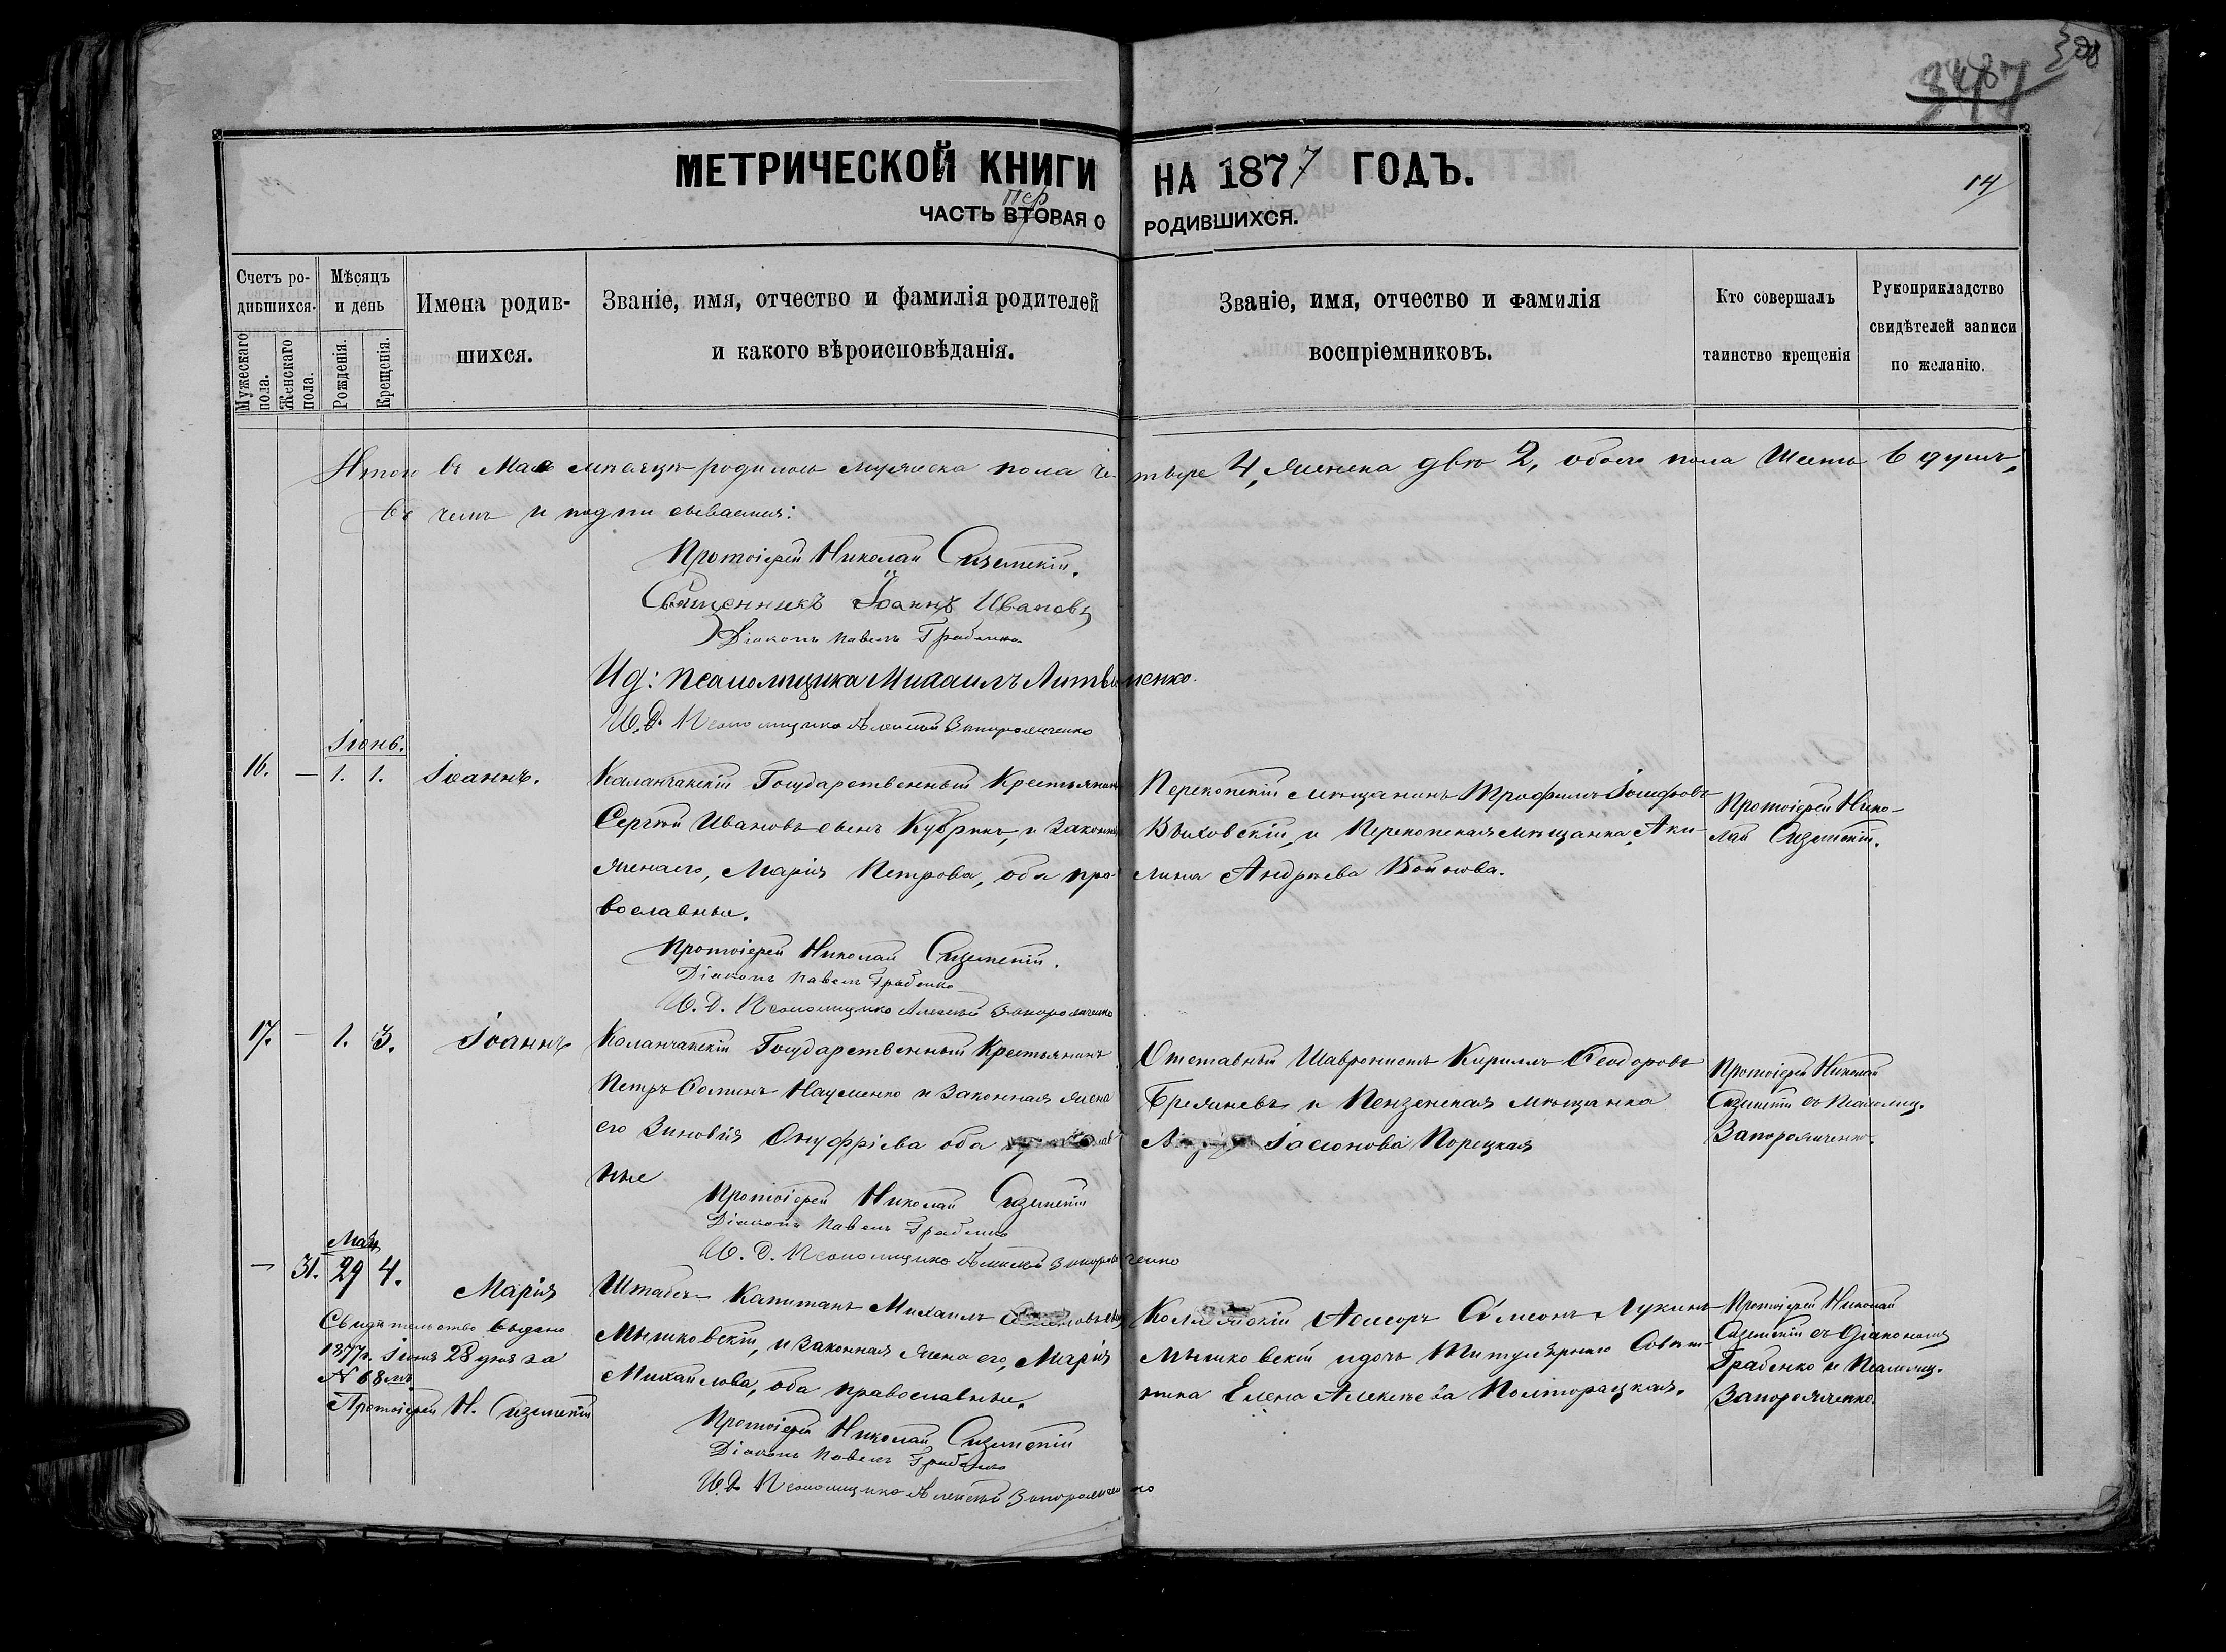 308
14
МЕТРИЧЕСКОЙ КНИГИ НА 1877 ГОДЪ.
Пер
ЧАСТЬ ВТОРАЯ О РОДИВШИХСЯ.
Счетъ ро-
дившихся.
Мужескаго пола.
Женскаго пола.
Мѣсяцъ
и день
Рожденія.
Крещенія.
Имена родив-
шихся.
Званіе, имя, отчество и фамилія родителей
и какого вѣроисповѣданія.
Званіе, имя, отчество и фамилія
воспріемниковъ.
Кто совершалъ
таинство крещенія
Рукоприкладство
свидѣтелей записи
по желанію.
Итого въ Мае мѣсяцѣ родилось мужеска пола че-тыре 4, женска двѣ 2, обоего пола Шесть 6 душъ,
въ чемъ и подписываемся:
Протоіерей Николай
Священникъ Іоаннъ Ивановъ
Діаконъ Павелъ Грабенко
И д: псаломщика Михаилъ Литвиненко.
И. Д. Псаломщика Алексѣй Запорожченко
Іюнь.
16. — 1. 1. Іоаннъ.
Каланчакскій Государственный Крестьянинъ
Сергѣй Ивановъ сынъ Кубракъ, и законная
жена его, Марія Петрова, оба пра-
вославные.
Перекопскій мѣщанинъ Трофимъ Іосифовъ
Выховскій, и Перекопская мѣщанка, Аки-
лина Андреева Войнова.
Протоіерей Нико-
лай
Протоіерей Николай
Діаконъ Павелъ Грабенко
И. Д. Псаломщика Алексѣй Запорожченко
17. — 1. 3. Іоаннъ
Каланчакскій Государственный Крестьянинъ
Петръ Ѳоминъ Науменко и законная жена
его Зиновія Онуфріева оба православ
ные
Отставный Кирилъ Ѳеодоровъ
и Пензенская мѣщанка
Іасонова Порецкая
Протоіерей Николай
съ Псаломщ.
Запорожченко.
Протоіерей Николай
Діаконъ Павелъ Грабенко
И. Д. Псаломщика Алексѣй Запорожченко
Мая
— 31. 29 4. Марія
Штабсъ-Капитанъ Михаилъ
Мышковскій, и законная жена его, Марія
Михайлова, оба православные.
Коллежскій Асесоръ Сімеонъ Лукинъ
Мышковскій и дочь Титулярнаго Совѣт-
ника Елена Алексѣева Полторацкая.
Протоіерей Николай
съ Діакономъ
Грабенко и Псаломщ.
Запорожченко.
Свидѣтельство выдано
1877 г. Іюня 28 дня за
№ 68 мъ
Протоіерей Н.
Протоіерей Николай
Діаконъ Павелъ Грабенко
И. Д. Псаломщика Алексѣй Запорожченко